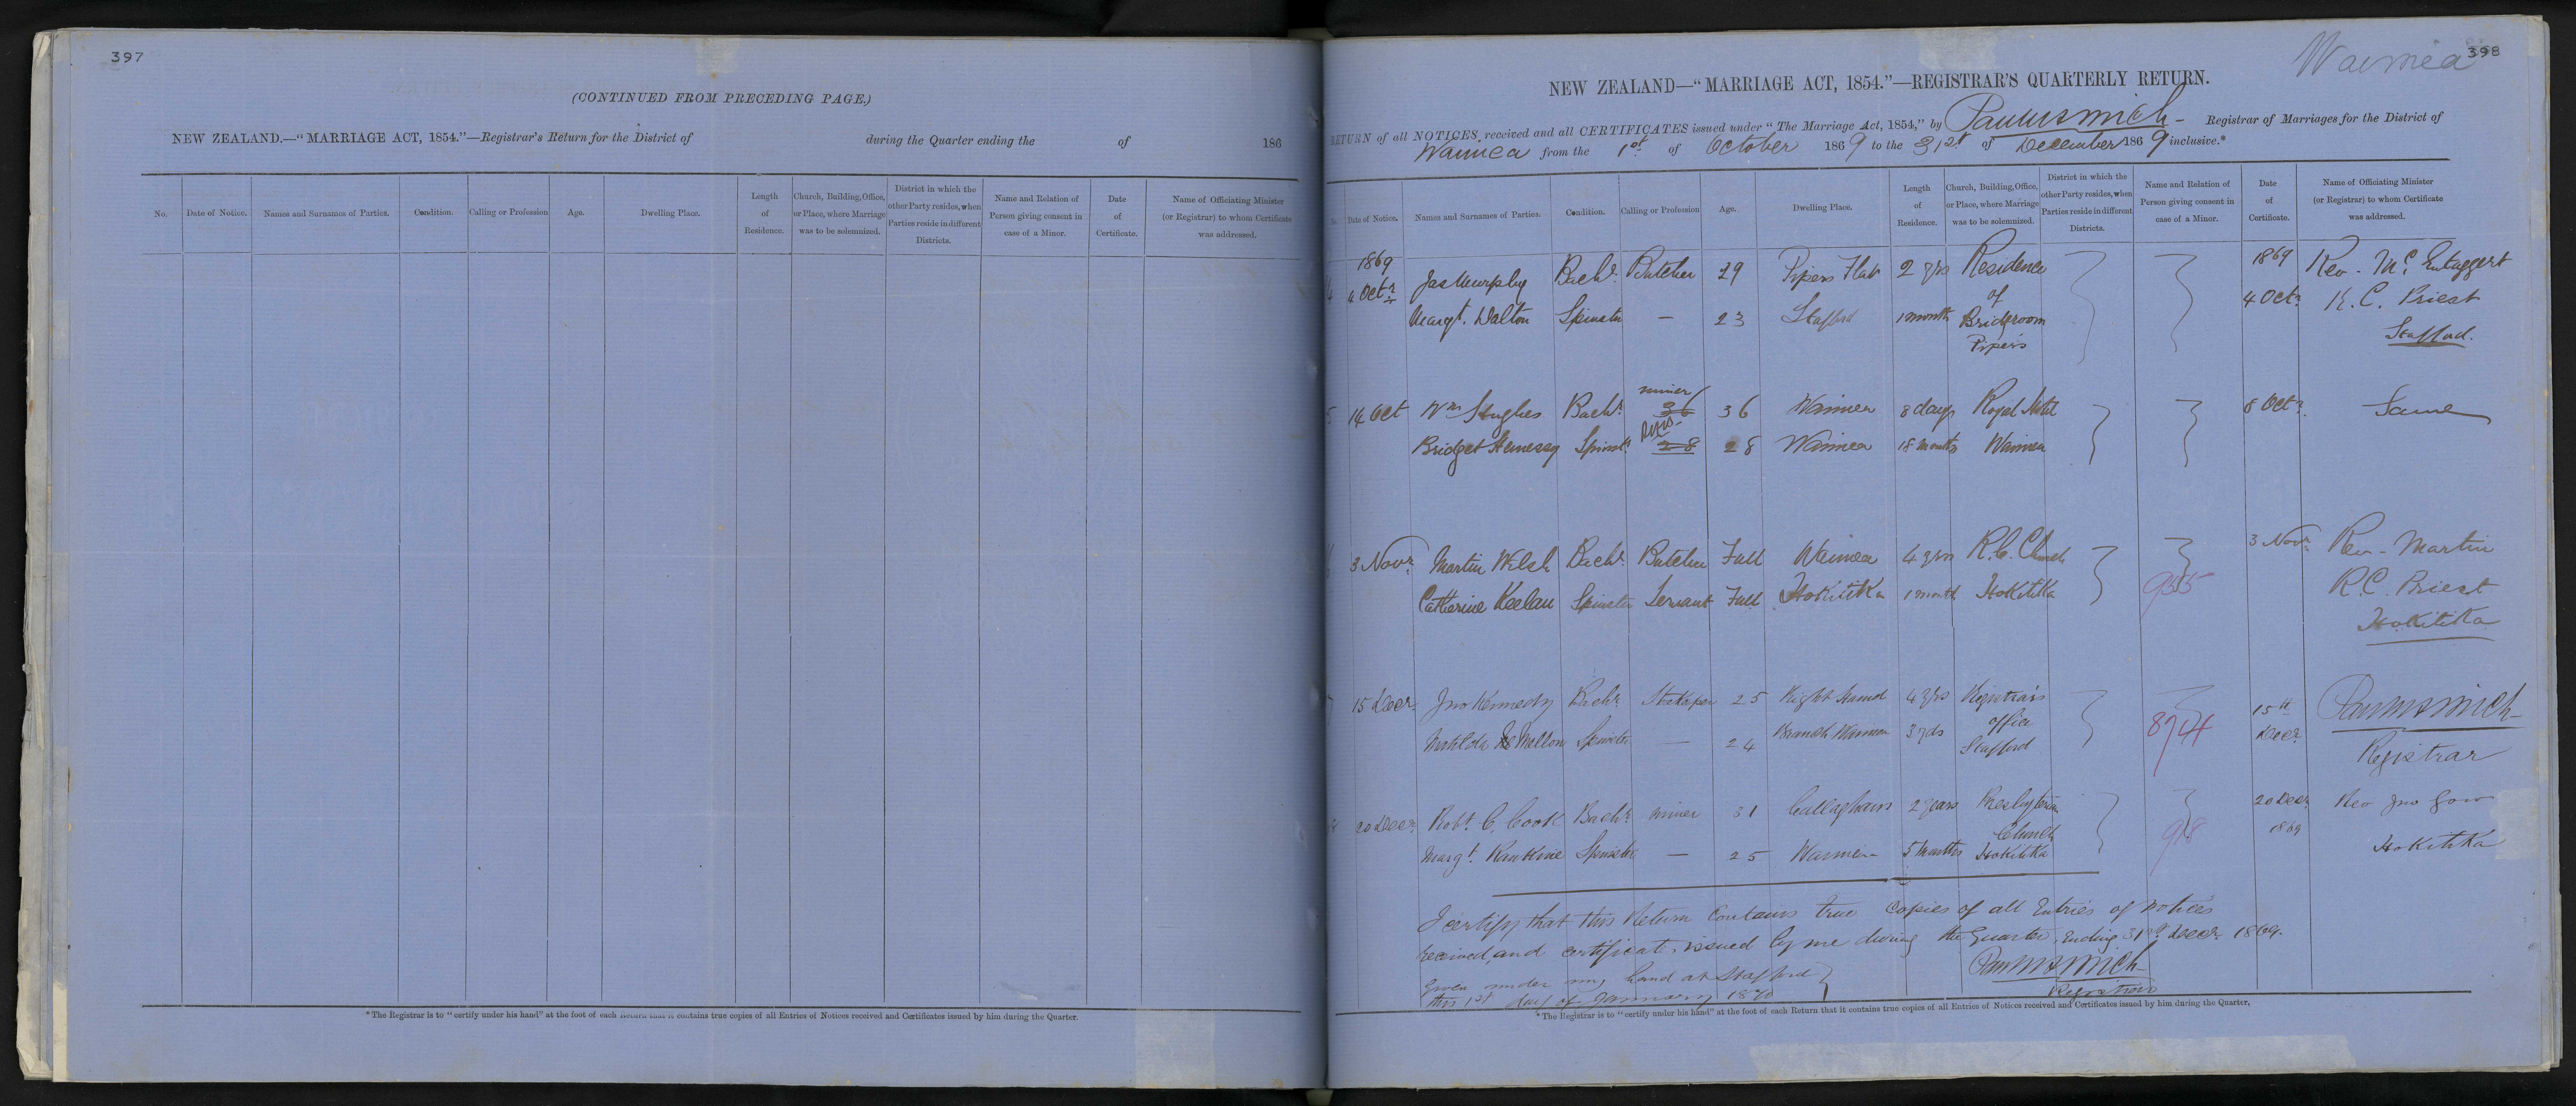 397
(CONTINUED FROM PRECEDING PAGE.)
NEW ZEALAND.—"MARRIAGE ACT, 1854."—Registrar's Return for the District of during the Quarter ending the of 186
No. Date of Notice. Names and Surnames of Parties. Condition. Calling or Profession Age. Dwelling Place. Length of Residence. Church, Building, Office, or Place, where Marriage was to be solemnized. District in which the other Party resides, when Parties reside in different Districts. Name and Relation of Person giving consent in case of a Minor. Date of Certificate. Name of Officiating Minister (or Registrar) to whom Certificate was addressed.
*The Registrar is to "certify under his hand" at the foot of each Return that it contains true copies of all Entries of Notices received and Certificates issued by him during the Quarter.
Waimea 398
NEW ZEALAND—"MARRIAGE ACT, 1854."—REGISTRAR'S QUARTERLY RETURN.
RETURN of all NOTICES received and all CERTIFICATES issued under "The Marriage Act, 1854," by Registrar of Marriages for the District of
Waimea from the 1st of October 1869 to the 31st of December 1869 inclusive.*
Date of Notice. Names and Surnames of Parties. Condition. Calling or Profession Age. Dwelling Place. Length of Residence. Church, Building, Office, or Place, where Marriage was to be solemnized. District in which the other Party resides, when Parties reside in different Districts. Name and Relation of Person giving consent in case of a Minor. Date of Certificate. Name of Officiating Minister (or Registrar) to whom Certificate was addressed.
1869 1869
4 Octr Jas Murphy Bachr Butcher 29 Pipers Flat 2 yrs Residence of 4 Octr Rev. Mc Entaggert
Margt. Dalton Spinster — 23 Stafford 1 month Bridgroom R.C. Priest
Pipers Stafford.
miner
5 14 Oct Wm Hughes Bachr 36 36 Waimea 8 days Royal Hotel 8 Octr Same
Bridget Henessy Spinstr 28 28 Waimea 18 months Waimea
3 Novr Martin Welsh Bachr Butcher Full Waimea 4 yrs R.C. Church 3 Novr Rev. Martin
Catherine Keelan Spinster Servant Full Hokitika 1 month Hokitika 955 R.C. Priest
Hokitika
7 15 Decr Jno Kennedy Bachr 25 Right Hand 4 yrs Registrars 15th
Matilda Mellon Spinster — 24 Branch Waimea 3 office Stafford 874 Decr Registrar
8 20 Decr Robt C. Cook Bachr miner 31 Callaghans 2 years Presbyterian 20 Decr Rev Jno Gow
Margt. Rankine Spinster — 25 Waimea 5 months Church Hokitika 918 1869 Hokitika
I certify that this Return contains true copies of all Entries of Notices
received, and certificates issued by me during the Quarter, Ending 31st Decr 1869.
Given under my hand at Stafford
this 1st day of January 1870
Registrar
*The Registrar is to "certify under his hand" at the foot of each Return that it contains true copies of all Entries of Notices received and Certificates issued by him during the Quarter.